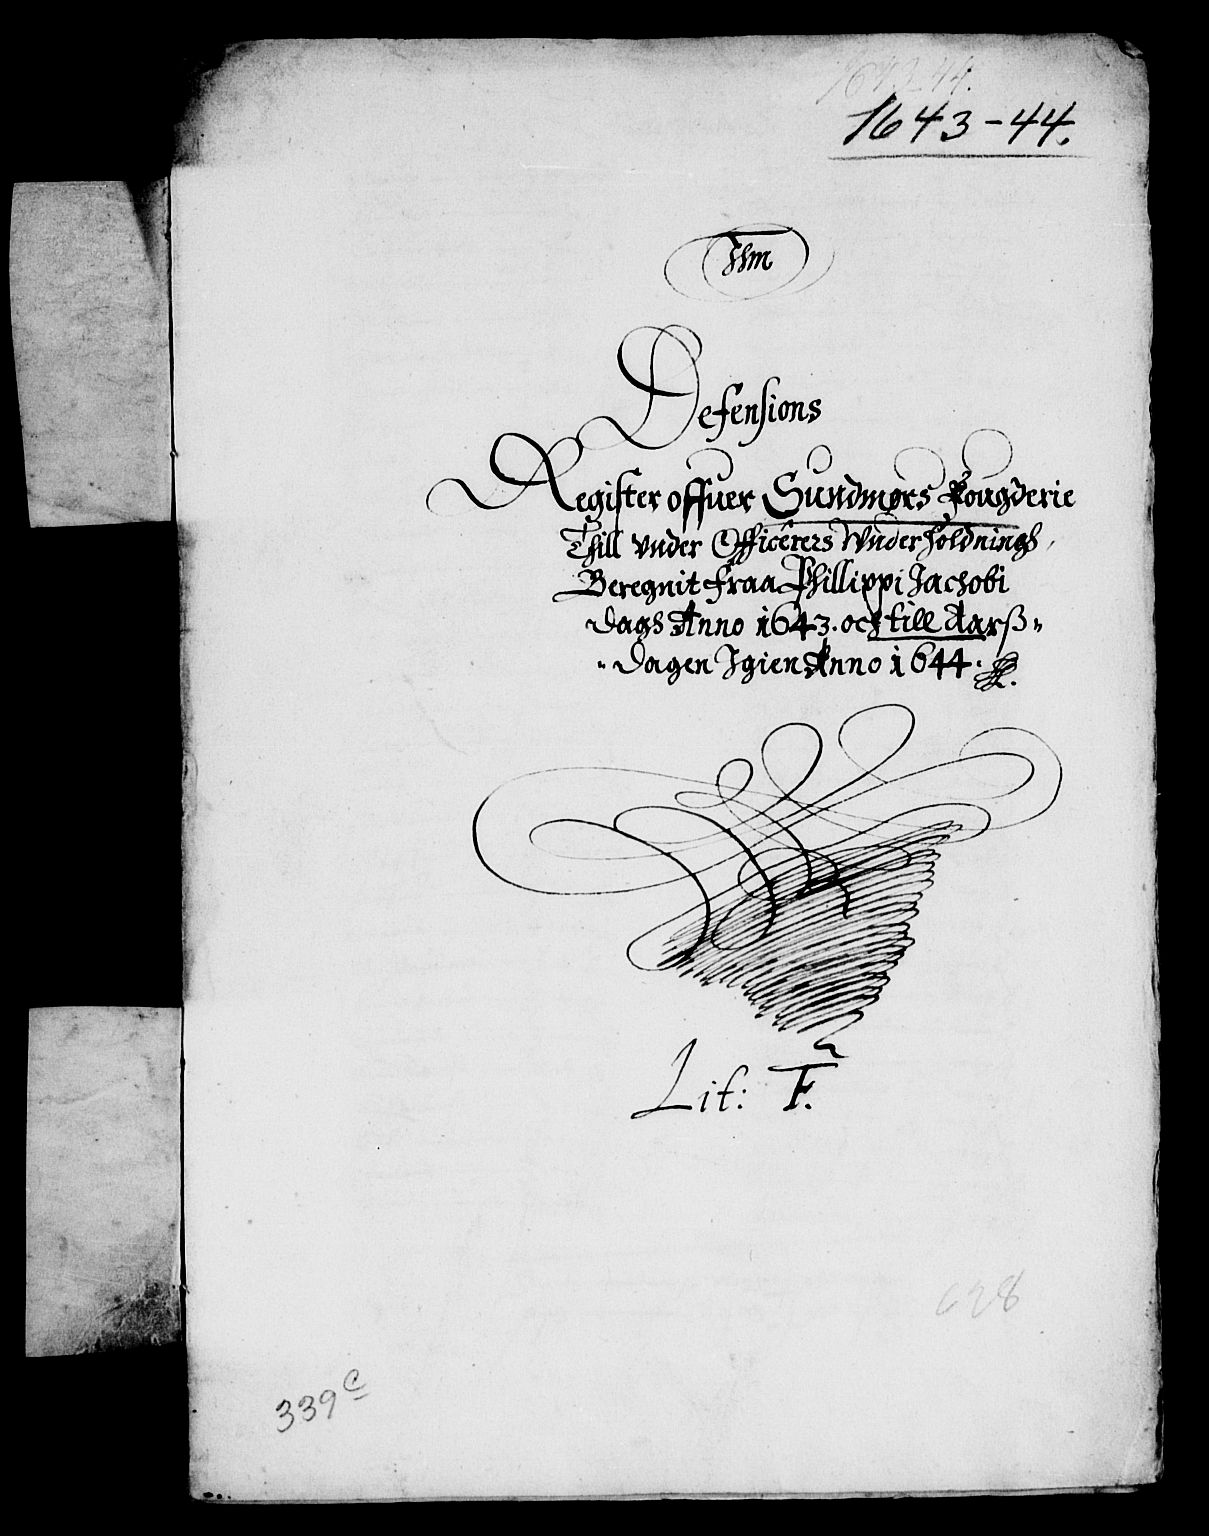 1643-44.
Defensions
Register offuer Sundmørs Fougderie
Thill Vnder Officerers Wnderholdningh,
Beregnit fraa Phillippi Jachobi
dagh Anno 1643. och till Aarß
dagen Igien Anno 1644.
Lit: F.
628
339 c